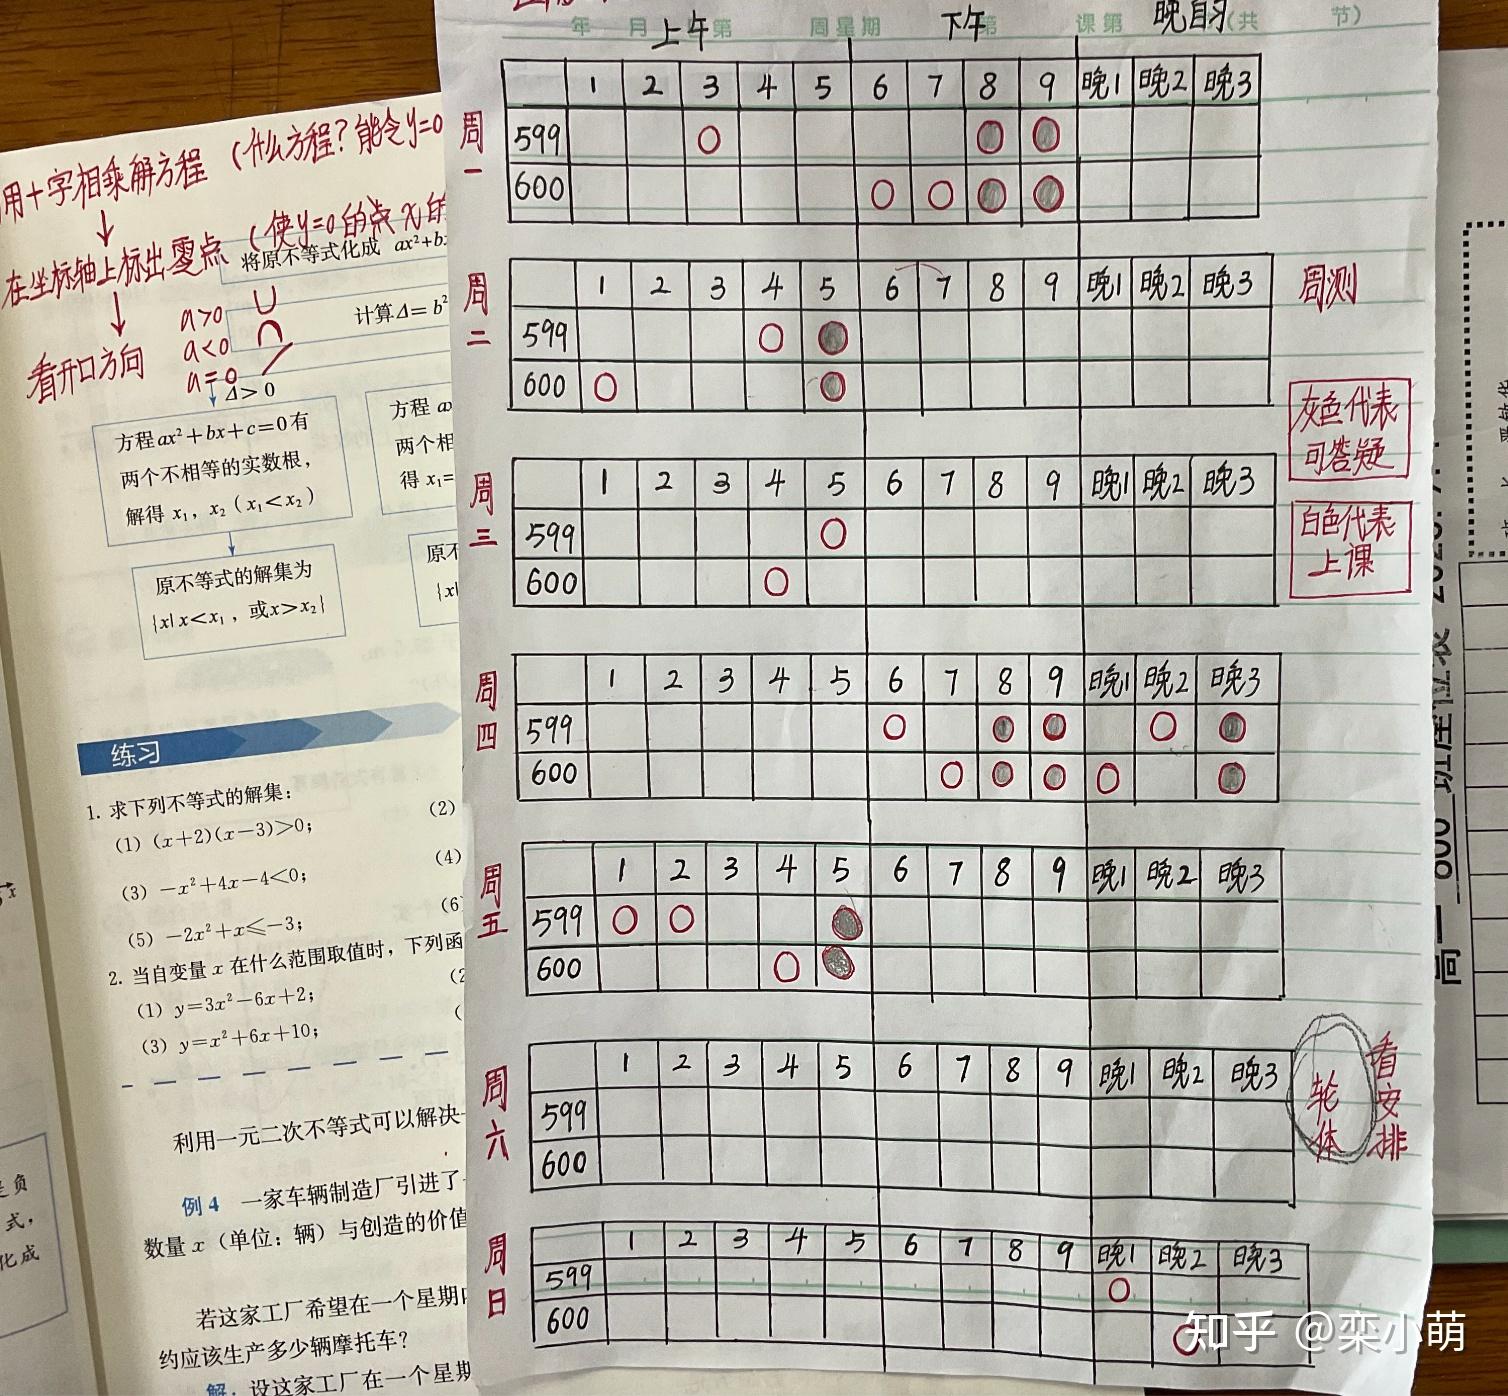 年 月 第 周星期 第 课第 (共 节)
上午 下午 晚自习
周一
1 2 3 4 5 6 7 8 9 晚1 晚2 晚3
599
600
周二
1 2 3 4 5 6 7 8 9 晚1 晚2 晚3
599
600
周测
灰色代表
可答疑
白色代表
上课
周三
1 2 3 4 5 6 7 8 9 晚1 晚2 晚3
599
600
周四
1 2 3 4 5 6 7 8 9 晚1 晚2 晚3
599
600
周五
1 2 3 4 5 6 7 8 9 晚1 晚2 晚3
599
600
周六
1 2 3 4 5 6 7 8 9 晚1 晚2 晚3
599
600
轮休
看安排
周日
1 2 3 4 5 6 7 8 9 晚1 晚2 晚3
599
600
用十字相乘解方程 (什么方程?能令y=0
在坐标轴上标出零点 (使y=0的点x的
看开口方向
a>0
a<0
a=0
将原不等式化成 ax²+b
计算Δ=b²
Δ>0
方程ax²+bx+c=0有
两个不相等的实数根,
解得 x₁, x₂ (x₁<x₂)
方程 a
两个相
得 x₁=
原不等式的解集为
{x|x<x₁, 或x>x₂}
原不
{x|
练习
1. 求下列不等式的解集:
(1) (x+2)(x-3)>0; (2)
(3) -x²+4x-4<0; (4)
(5) -2x²+x≤-3; (6)
2. 当自变量 x 在什么范围取值时, 下列函
(1) y=3x²-6x+2; (2
(3) y=x²+6x+10; (
利用一元二次不等式可以解决一
例4 一家车辆制造厂引进了一
数量 x (单位: 辆) 与创造的价值
若这家工厂希望在一个星期内
约应该生产多少辆摩托车?
解 设这家工厂在一个星期
负
式,
化成
高一 600 班座位表
知乎 @栾小萌